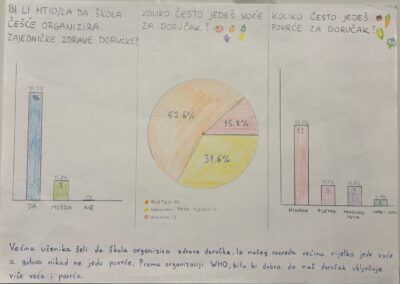 BI LI HTIO/LA DA ŠKOLA
ČEŠĆE ORGANIZIRA
ZAJEDNIČKE ZDRAVE DORUČKE?
16
3
DA
MOŽDA
NE
KOLIKO ČESTO JEDEŠ VOĆE
ZA DORUČAK?
52.6%
15.8%
31.6%
KOLIKO ČESTO JEDEŠ
POVRĆE ZA DORUČAK?
12
3
3
NIKADA
RIJETKO
Većina učenika želi da škola organizira zdrave doručke. Iz našeg razreda većina rijetko jede voće
a gotovo nikad ne jedu povrće. Prema organizaciji WHO, bilo bi dobro da naš doručak uključuje
više voća i povrća.